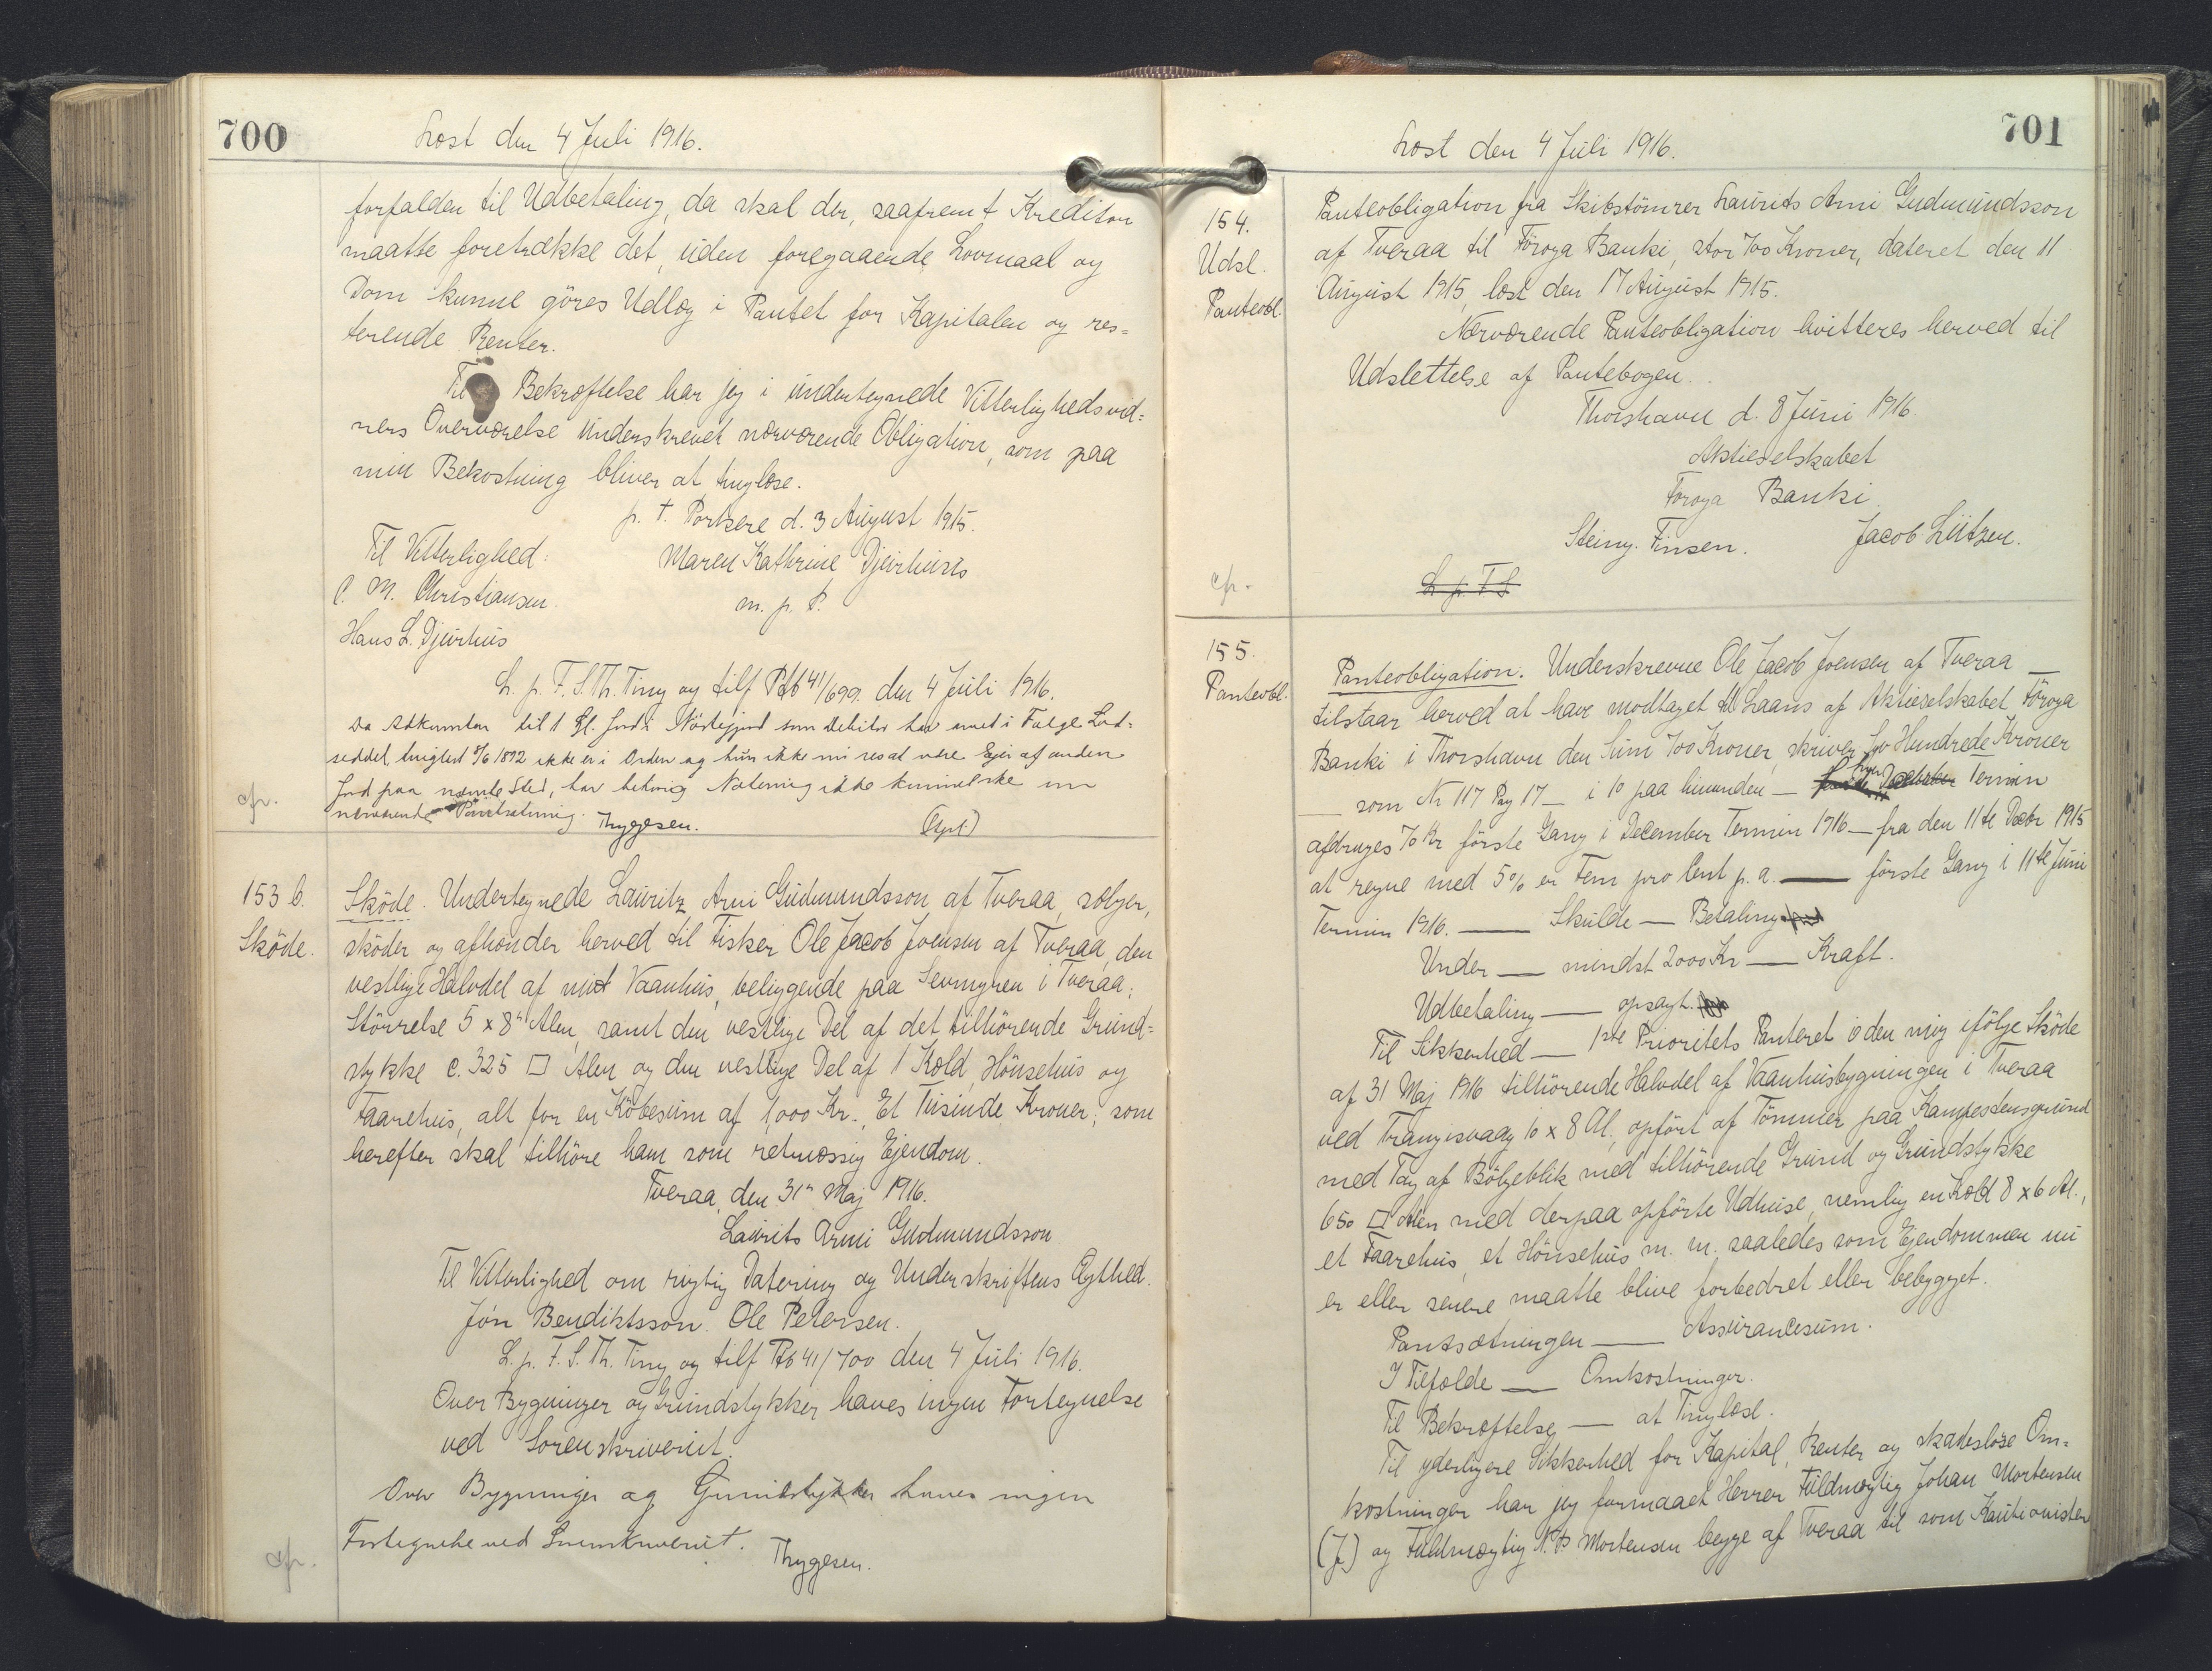 700
Læst den 4 Juli 1916.
forfalden til Udbetaling, da skal der, saafremt Kreditor
maatte foretrække det, uden foregaaende Lovmaal og
Dom kunne göres Udlæg i Pantet for Kapitalen og res=
terende Renter.
Til Bekræftelse har jeg i undertegnede Vitterlighedsvid=
ners Overværelse underskrevet nærværende Obligation, som paa
min Bekostning bliver at tinglæse.
p. t. Porkere d. 3 August 1915.
Til Vitterlighed:
Maren Kathrine Djurhuus
C. M. Christiansen.
m. p. P.
Hans L. Djurhuus
L. p. F. S. Th. Ting og tilf Ptb 41/699. den 4 Juli 1916.
Da Adkomsten til 1 Gl. Jord i som Debitor har i Følge Lod=
seddel tinglæst 8/6 1892 ikke er i Orden og hun ikke nu ses at være Ejer af anden
Jord paa nævnte Sted, har behørig Notering ikke kunnet ske
nærværende Pantsætning. Thygesen.
cfr.
153 b.
Sköde.
Sköde. Undertegnede Lauritz Arni Gudmundsson af Tveraa, sælger,
sköder og afhænder herved til Fisker Ole Jacob Joensen af Tveraa, den
vestlige Halvdel af mit Vaanhus, beliggende paa Sevmyren i Tveraa;
Störrelse 5 x 8 Alen, samt den vestlige Del af det tilhörende Grund=
stykke c. 325 □ Alen og den vestlige Del af 1 Kold, Hönsehus og
Faarehus, alt for en Köbesum af 1,000 Kr., Et Tusinde Kroner; som
herefter skal tilhöre ham som retmæssig Ejendom.
Tveraa, den 31 Maj 1916.
Laurits Arni Gudmundsson
Til Vitterlighed om rigtig Datering og Underskriftens Ægthed.
Jón Bendiktsson. Ole Petersen.
L. p. F. S. Th. Ting og tilf Ptb 41/700 den 4 Juli 1916.
Over Bygninger og Grundstykker haves ingen Fortegnelse
ved Sorenskriveriet.
Over Bygninger og Grundstykker haves ingen
Fortegnelse ved Sorenskriveriet.
Thygesen.
cfr.
701
Læst den 4 Juli 1916.
154.
Udsl.
Panteobl.
Panteobligation fra Skibstömrer Laurits Arni Gudmundsson
af Tveraa til Föroya Banki, stor 700 Kroner, dateret den 11
August 1915, læst den 17 August 1915.
Nærværende Panteobligation kvitteres herved til
Udslettelse af Pantebogen.
Thorshavn d. 8 Juni 1916.
Aktieselskabet
Föroya Banki.
Steing. Finsen. Jacob Lützen.
cfr.
L. p. F S
155.
Panteobl.
Panteobligation. Underskrevne Ole Jacob Joensen af Tveraa —
tilstaar herved at have modtaget til Laans af Aktieselskabet Föroya
Banki i Thorshavn den Sum 700 Kroner, skriver Syv Hundrede Kroner
— som Nr 117 Pag 17 — i 10 paa hinanden — Termin
afdrages 70 Kr förste Gang i December Termin 1916 — fra den 11te Decbr 1915
at regne med 5% er Fem pro Cent p. a. — förste Gang i 11te Juni
Termin 1916. — Skulde — Betaling
Under — mindst 2000 Kr — Kraft.
Udbetaling — opsagt.
Til Sikkerhed — 1ste Prioritets Panteret i den mig ifölge Sköde
af 31 Maj 1916 tilhörende Halvdel af Vaanhusbygningen i Tveraa
ved Trangisvaag 10 x 8 Al., opfört af Tömmer paa Kampestensgrund
med Tag af Bölgeblik med tilhörende Grund og Grundstykke
650 □ Alen med derpaa opförte Udhuse, nemlig en Kold 8 x 6 Al.,
et Faarehus, et Hönsehus m. m. saaledes som Ejendommen nu
er eller senere maatte blive forbedret eller bebygget.
Pantsætningen — Assurancesum.
I Tilfælde — Omkostninger.
Til Bekræftelse — at Tinglæse.
Til yderligere Sikkerhed for Kapital, Renter og skadeslöse Om=
kostninger har jeg formaaet Herrer Fuldmægtig Johan Mortensen
(J.) og Fuldmægtig N. P. Mortensen begge af Tveraa til som Kautionister